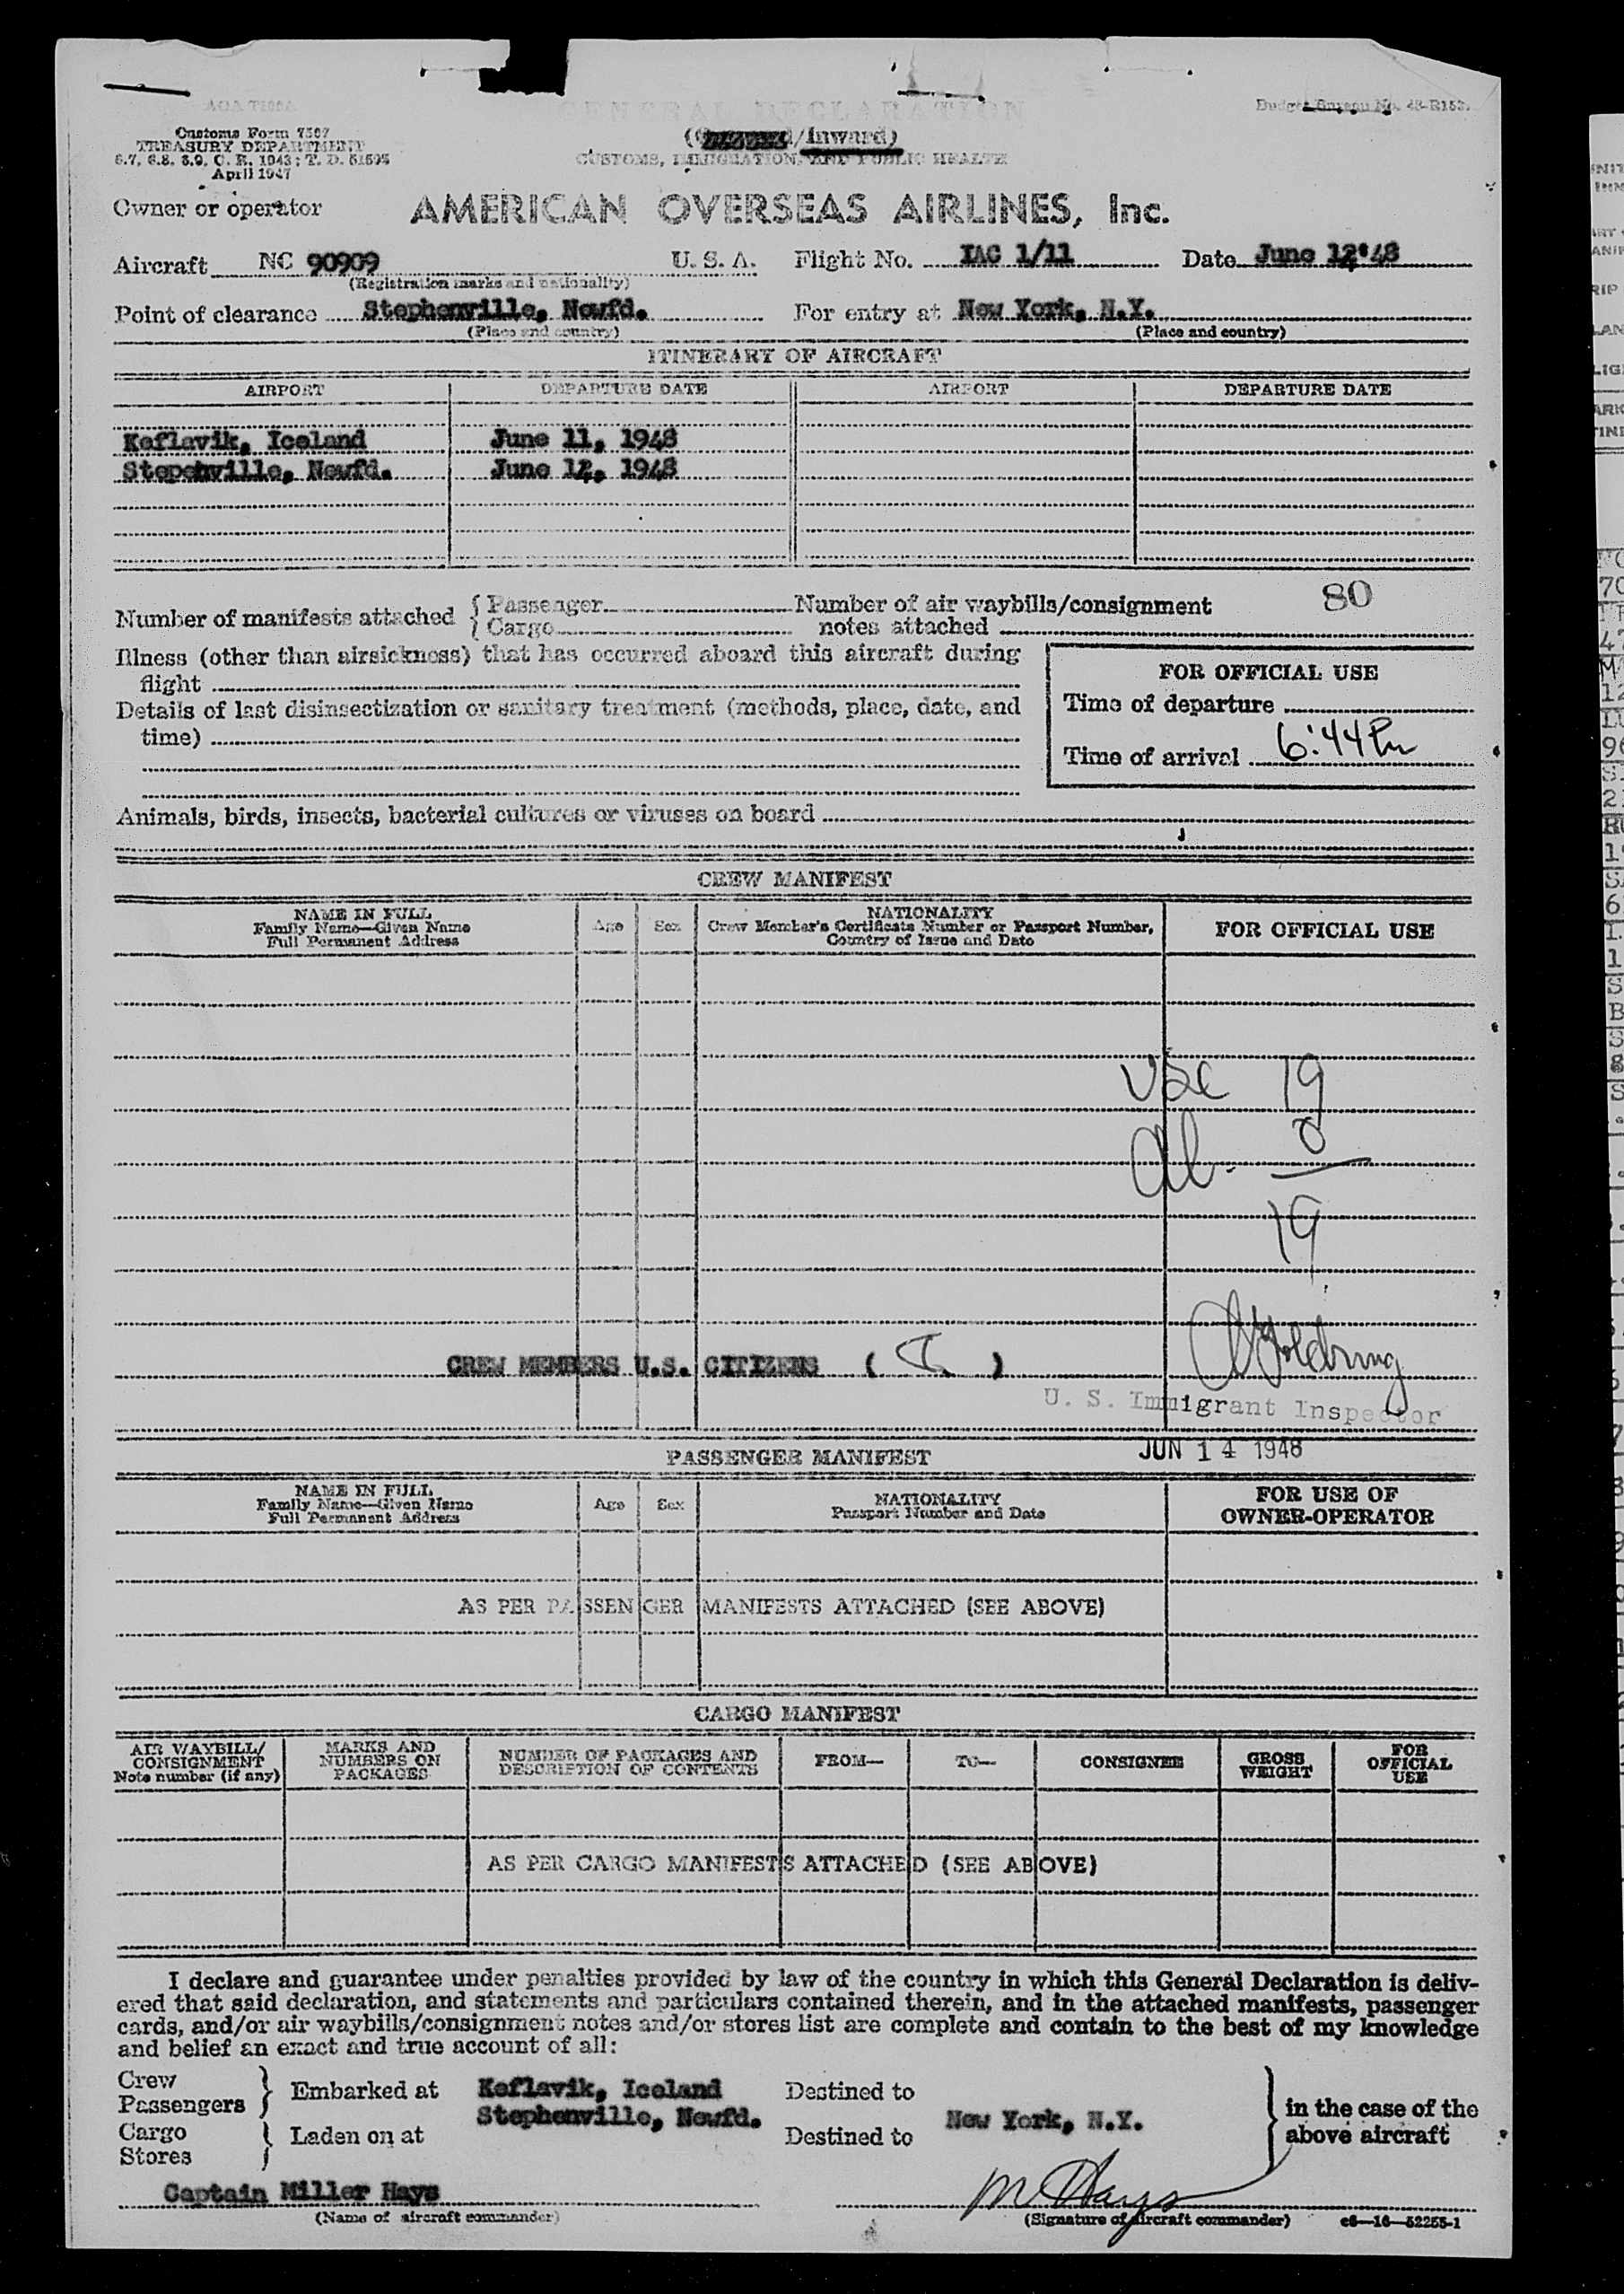 GENERAL DECLARATION
Customs Form 7507
TREASURY DEPARTMENT
April 1947
Budget Bureau No. 48-R152.
/Inward)
CUSTOMS, IMMIGRATION, AND PUBLIC HEALTH
Owner or operator AMERICAN OVERSEAS AIRLINES, Inc.
Aircraft NC 90909 U. S. A. Flight No. IAC 1/11 Date June 12'48
(Registration marks and nationality)
Point of clearance Stephenville, Newfd. For entry at New York, N.Y.
(Place and country) (Place and country)
ITINERARY OF AIRCRAFT
AIRPORT DEPARTURE DATE AIRPORT DEPARTURE DATE
Keflavik, Iceland June 11, 1948
Stepehville, Newfd. June 12, 1948
Number of manifests attached { Passenger Number of air waybills/consignment 80
{ Cargo notes attached
Illness (other than airsickness) that has occurred aboard this aircraft during
flight
Details of last disinsectization or sanitary treatment (methods, place, date, and
time)
FOR OFFICIAL USE
Time of departure
Time of arrival 6:44 Pm
Animals, birds, insects, bacterial cultures or viruses on board
CREW MANIFEST
NAME IN FULL
Family Name—Given Name
Full Permanent Address
Age Sex
NATIONALITY
Crew Member's Certificate Number or Passport Number,
Country of Issue and Date
FOR OFFICIAL USE
USC 19
Al. 0
19
CREW MEMBERS U.S. CITIZENS ( )
U. S. Immigrant Inspector
JUN 14 1948
PASSENGER MANIFEST
NAME IN FULL
Family Name—Given Name
Full Permanent Address
Age Sex
NATIONALITY
Passport Number and Date
FOR USE OF
OWNER-OPERATOR
AS PER PASSENGER MANIFESTS ATTACHED (SEE ABOVE)
CARGO MANIFEST
AIR WAYBILL/
CONSIGNMENT
Note number (if any)
MARKS AND
NUMBERS ON
PACKAGES
NUMBER OF PACKAGES AND
DESCRIPTION OF CONTENTS
FROM— TO— CONSIGNEE
GROSS
WEIGHT
FOR
OFFICIAL
USE
AS PER CARGO MANIFESTS ATTACHED (SEE ABOVE)
I declare and guarantee under penalties provided by law of the country in which this General Declaration is deliv-
ered that said declaration, and statements and particulars contained therein, and in the attached manifests, passenger
cards, and/or air waybills/consignment notes and/or stores list are complete and contain to the best of my knowledge
and belief an exact and true account of all:
Crew
Passengers } Embarked at Keflavik, Iceland Destined to
Stephenville, Newfd. New York, N.Y.
Cargo
Stores } Laden on at Destined to
} in the case of the
above aircraft
Captain Miller Hays M Hays
(Name of aircraft commander) (Signature of aircraft commander) c6—16—52255-1